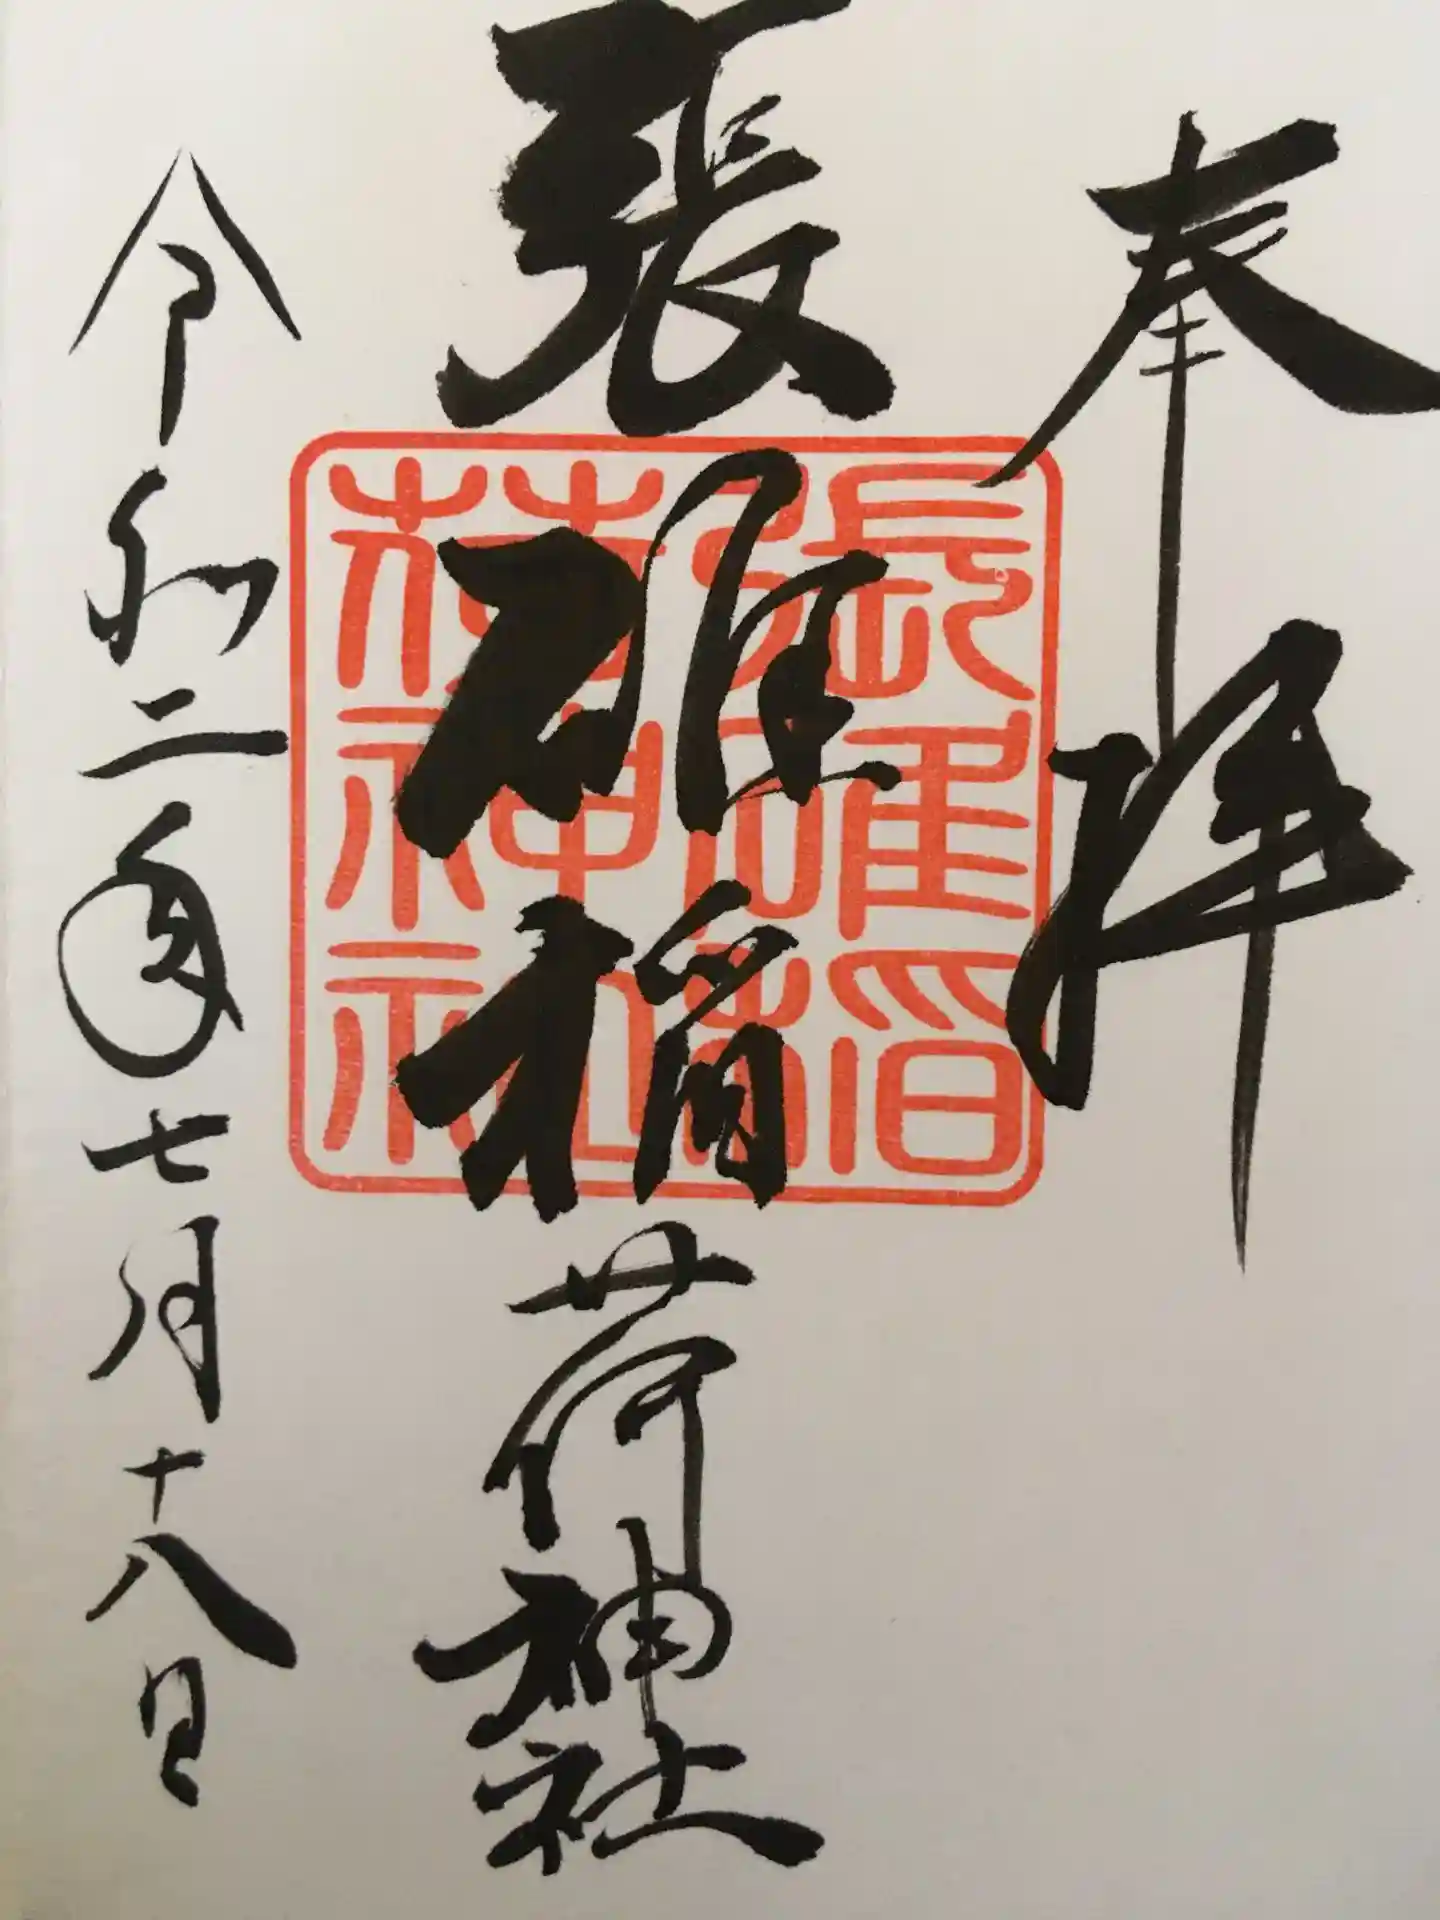 奉拝
張碓稲荷神社
令和二年七月十八日
張碓稲
荷神社